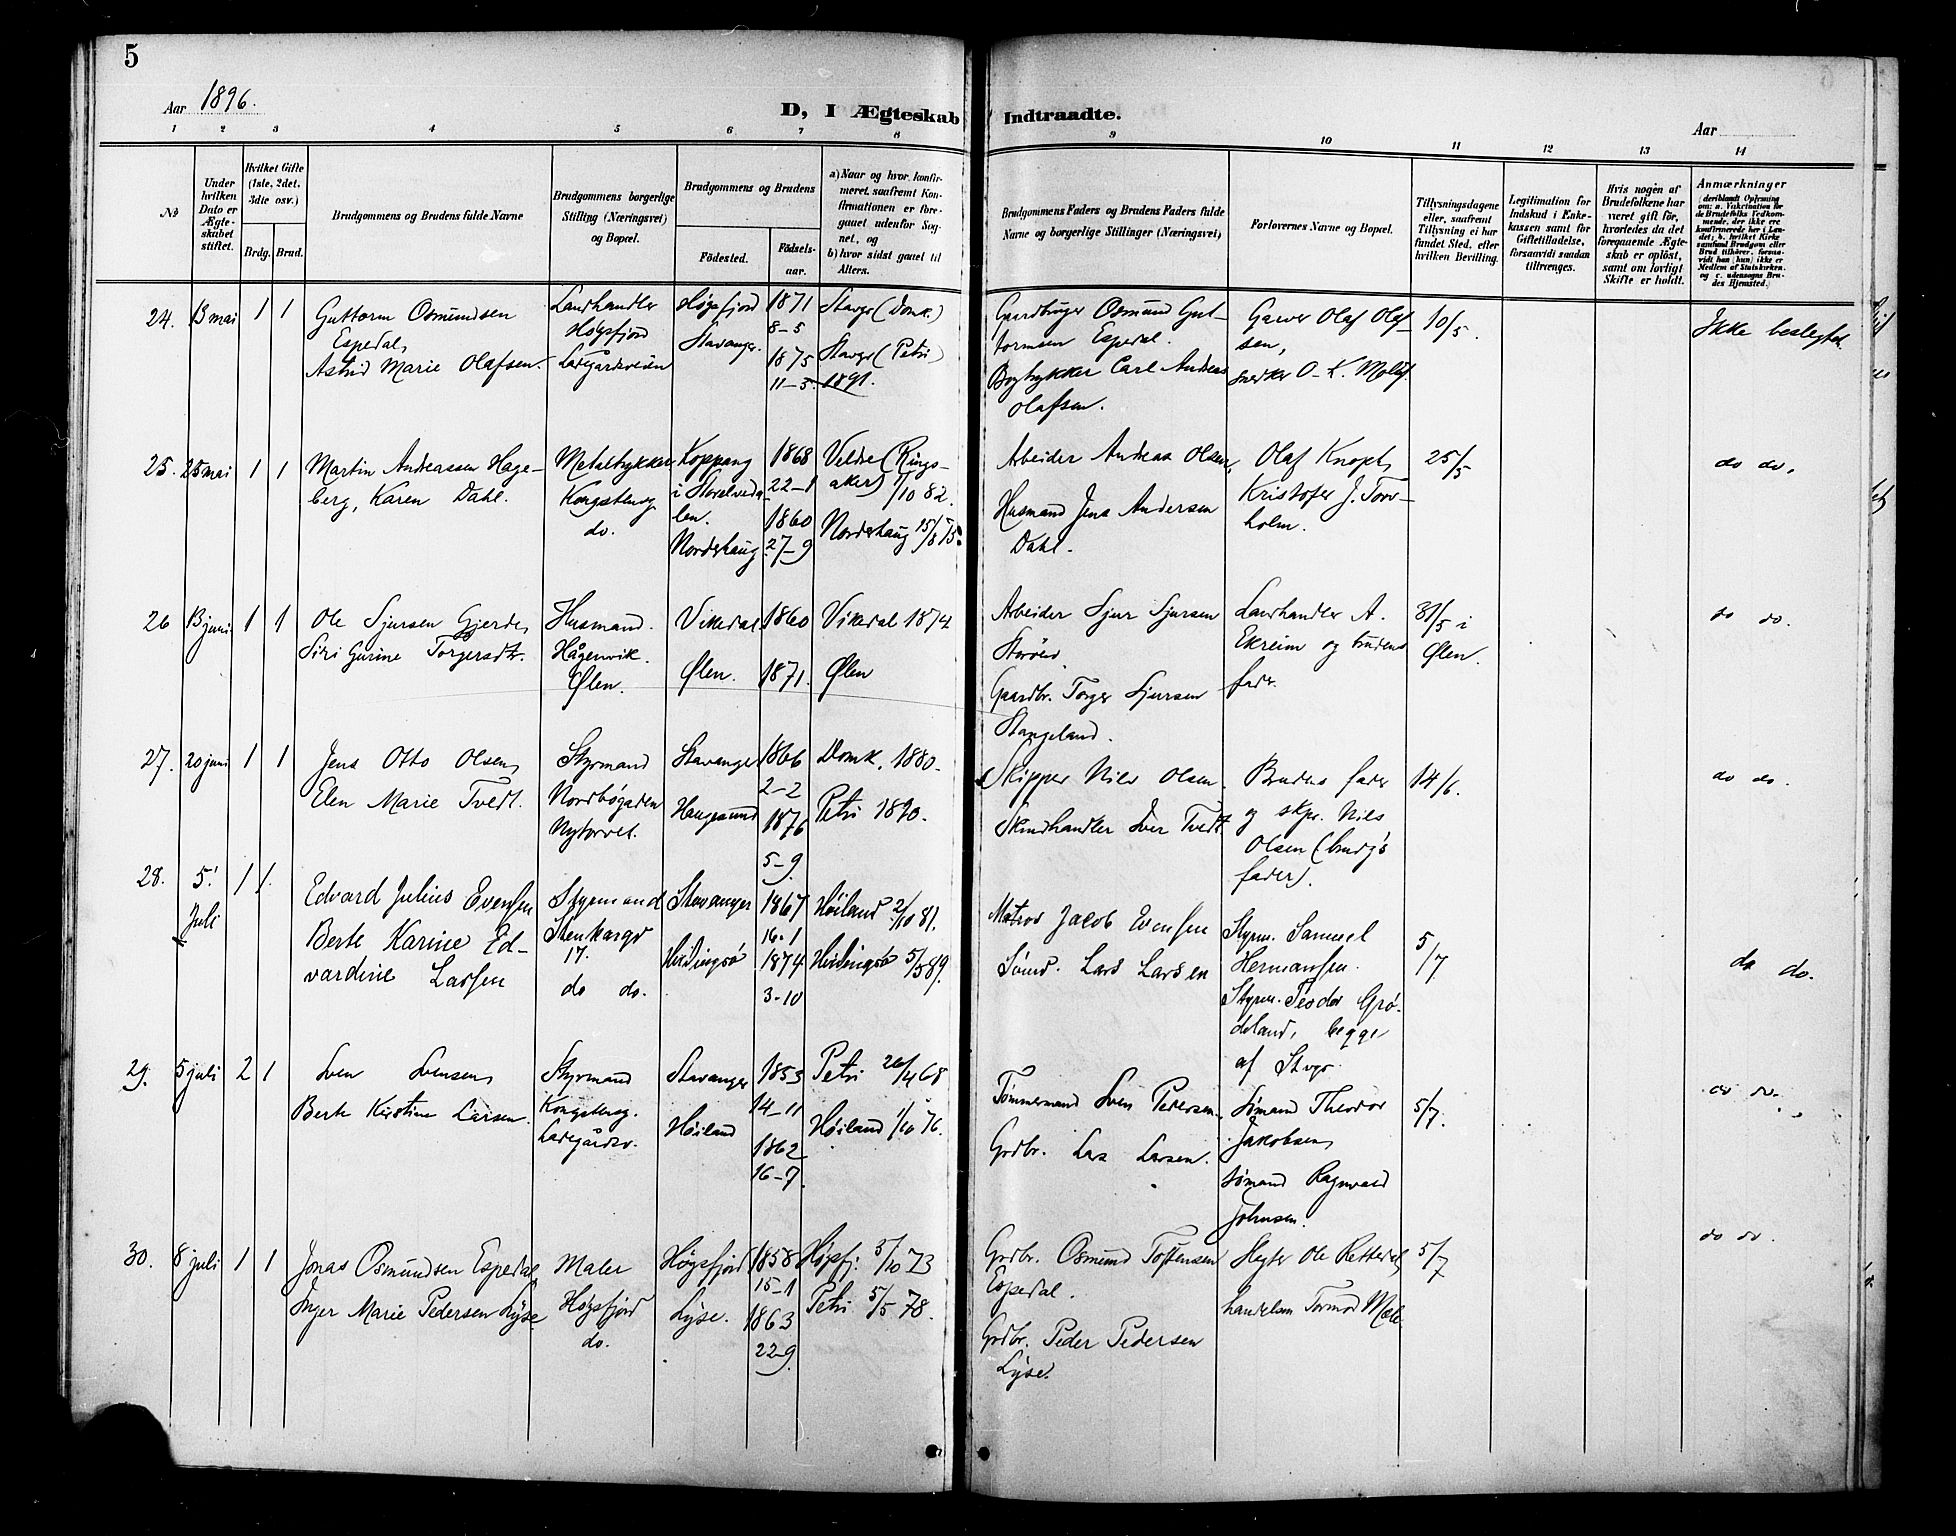 5
Aar 1896.
D, I Ægteskab Indtraadte.
Aar
1 2 3 4 5 6 7 8 9 10 11 12 13 14
No
Under hvilken Dato er Ægteskabet stiftet.
Hvilket Gifte (1ste, 2det, 3die osv.)
Brdg. Brud.
Brudgommens og Brudens fulde Navne
Brudgommens borgerlige Stilling (Næringsvei) og Bopæl.
Brudgommens og Brudens
Födested.
Födselsaar.
a) Naar og hvor konfirmeret, saafremt Konfirmationen er foregaaet udenfor Sognet, og
b) hvor sidst gaaet til Alters.
Brudgommens Faders og Brudens Faders fulde Navne og borgerlige Stillinger (Næringsvei)
Forlovernes Navne og Bopæl.
Tillysningsdagene eller, saafremt Tillysning ei har fundet Sted, efter hvilken Bevilling.
Legitimation for Indskud i Enkekassen samt for Giftetilladelse, forsaavidt saadan tiltrænges.
Hvis nogen af Brudefolkene har været gift för, hvorledes da det foregaaende Ægteskab er oplöst, samt om lovligt Skifte er holdt.
Anmærkninger
(deriblandt Oplysning om: a. Vakcination for de Brudefolks Vedkommende, der ikke ere konfirmerede her i Landet; b. hvilket Kirkesamfund Brudgom eller Brud tilhörer, forsaavidt han (hun) ikke er Medlem af Statskirken, og c. udensogns Brudes Hjemsted.)
24. 13 mai 1 1
Guttorm Osmundsen
Espedal,
Astrid Marie Olafsen.
Landhandler
Høgsfjord
Ladegårdsveien
Høgsfjord
Stavanger.
1871
8-5
1875
11-5
Stavgr (Domk.)
Stavgr (Petri)
1891.
Gaardbruger Osmund Guttormsen Espedal.
Bogtrykker Carl Andreas
Olafsen.
Garver Olaf Olafsen,
snedker O. K.
10/5.
Ikke beslegtet.
25. 25 mai 1 1
Martin Andreassen Hageberg, Karen Dahl.
Metaltrykker
Kongsteng.
do.
Koppang
i Storelvedalen.
Norderhaug
1868
22-1
1860
27-9
Veldre (Ringsaker) 1/10 82.
Norderhaug 15/8 75.
Arbeider Andreas Olsen,
Husmand Jens Andersen
Dahl.
Olaf Knoph,
Kristofer J. Torsholm.
25/5
do do.
26 13 juni 1 1
Ole Sjursen Gjerde,
Siri Gurine Torgersdtr.
Husmand.
Hågenvik.
Ølen.
Vikedal
Ølen.
1860
1871.
Vikedal 1874
Ølen
Arbeider Sjur Sjursen
Gaardbr. Torger Sjursen
Stangeland.
Landhandler A.
Ekreim og brudens
fader.
31/5 i
Ølen.
do do.
27. 20 juni 1 1
Jens Otto Olsen,
Elen Marie Tvedt.
Styrmand
Nordbøgaden
Nytorvet.
Stavanger
Haugesund
1866
2-2
1876
5-9
Domk. 1880.
Petri 1890.
Skipper Nils Olsen.
Skindhandler Iver Tvedt
Brudens fader
og skpr. Nils
Olsen (brudg's
fader).
14/6.
do do.
28. 5. Juli 1 1.
Edvard Julius Evensen
Berte Karine Edvardine Larsen
Styrmand
Stenkargt
17.
do do.
Stavanger
Hvidingsø
1867
16-1
1874
3-10
Høiland 2/10 81.
Hvidingsø 5/5 89.
Matros Jacob Evensen
Sømd. Lars Larsen
Styrm. Samuel
Hermansen.
Styrm. Teodor Grødeland, begge
af Stvgr.
5/7
do do.
29. 5 juli 2 1
Sven Svensen,
Berte Kirstine Larsen.
Styrmand
Kongsteng.
Ladegårdsv.
Stavanger
Høiland
1853
14-11
1862
16-7
Petri 26/4 68
Høiland 1/10 76.
Tømmermand Sven Pedersen.
Grdbr. Lars Larsen.
Sømand Theodor
Jakobsen,
sømand Ragnvald
Johnsen.
5/7.
do do.
30. 8 juli 1 1
Jonas Osmundsen Espedal
Inger Marie Pedersen Lyse
Maler
Høgsfjord
do.
Høgsfjord
Lyse.
1858
15-1
1863
22-9
Høgsfj. 5/10 73
Petri 5/5 78.
Grdbr. Osmund Toftensen
Espedal.
Grdbr. Peder Pedersen
Lyse.
Slagter Ole Rettedal,
handelsm Tormod Mæle
5/7
do do.